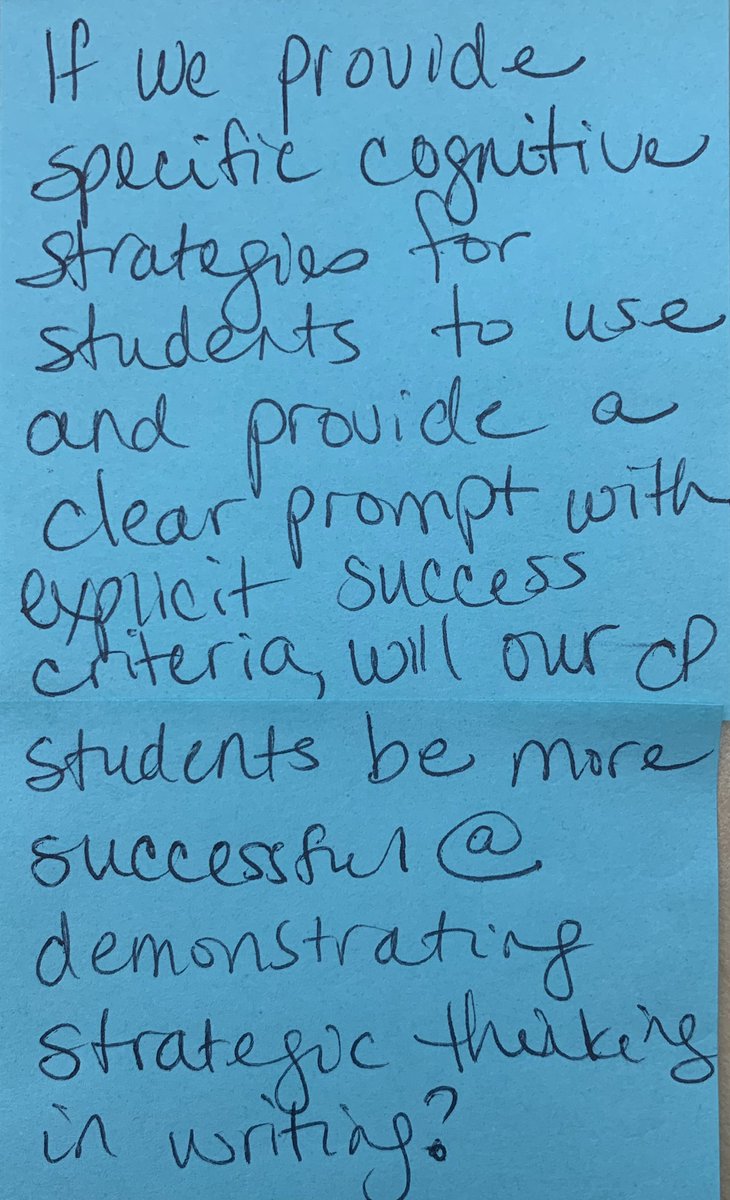 If we provide
specific cognitive
strategies for
students to use
and provide a
clear prompt with
explicit success
criteria, will our CP
students be more
successful @
demonstrating
strategic thinking
in writing?